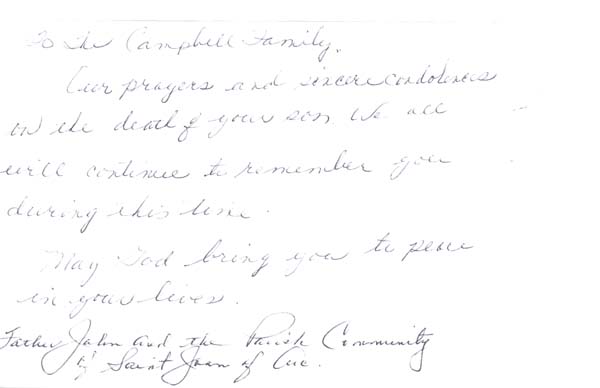 To the Campbell Family.
Our prayers and sincere condolences
on the death of your son. We all
will continue to remember you
during this time.
May God bring you to peace
in your lives.
Father John and the Parish Community
of Saint Joan of Arc.